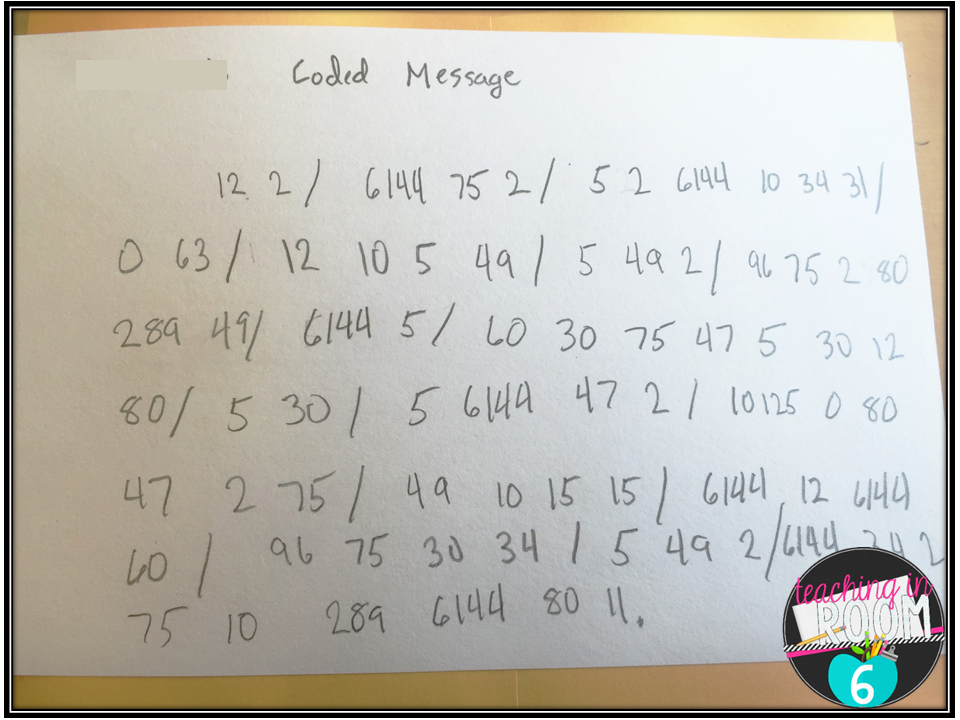 Coded Message
12 2 / 6144 75 2 / 5 2 6144 10 34 31 /
0 63 / 12 10 5 49 / 5 49 2 / 96 75 2 80
289 49 / 6144 5 / 60 30 75 47 5 30 12
80 / 5 30 / 5 6144 47 2 / 10 125 0 80
47 2 75 / 49 10 15 15 / 6144 12 6144
60 / 96 75 30 34 / 5 49 2 / 6144 2
75 10 289 6144 80 11.
teaching in
ROOM
6